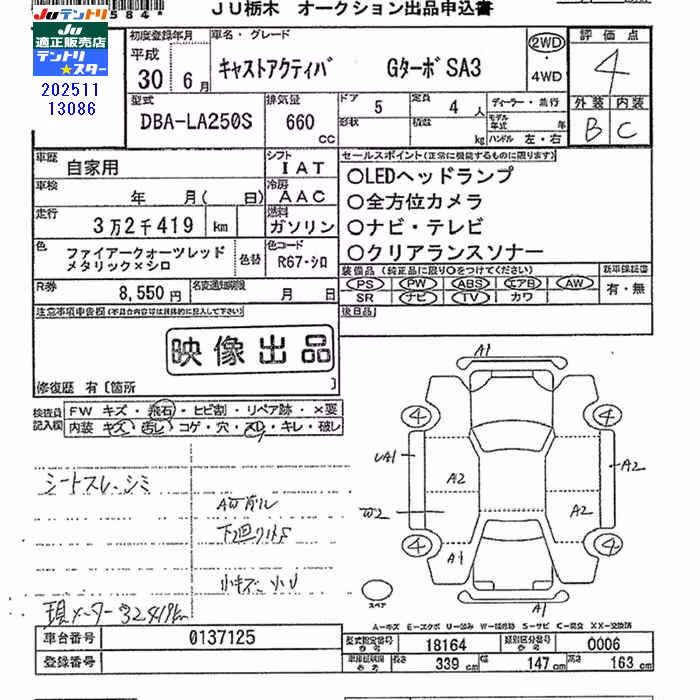 584*
JU栃木 オークション出品申込書
JUテントリ
JU
適正販売店
テントリ
★スター
202511
13086
初度登録年月
平成
30年 6月
車名・グレード
キャストアクティバ GターボSA3
2WD
・
4WD
評価点
4
外装 内装
B C
型式
DBA-LA250S
排気量
660 CC
ドア 5
形状
定員 4人
積載 kg
ディーラー・並行
モデル年式 年
ハンドル 左・右
車歴 自家用
シフト IAT
車検 年 月( 日)
冷房 AAC
走行 3万2千419 km
燃料 ガソリン
色 ファイアークォーツレッド
メタリック×シロ
色替
色コード
R67・シロ
R券 8,550円
名変通知期限 月 日
セールスポイント(正常に機能するものに限ります)
○LEDヘッドランプ
○全方位カメラ
○ナビ・テレビ
○クリアランスソナー
装備品(純正品に限り○をつけてください) 新車保証書
PS PW ABS エアB AW 有・無
SR ナビ TV カワ
後日品
注意事項申告欄(不具合内容等は具体的に記入して下さい)
映像出品
修復歴 有〔箇所 〕
検査員記入欄
FW キズ・飛石・ヒビ割・リペア跡・×要
内装 キズ・汚レ・コゲ・穴・スレ・キレ・破レ
シートスレ、シミ
AW削レ
下廻りサビ
小キズ、小U
現メーター32419km
A1
4
4
UA1
A2
A2
W2
A2
4
4
A1
A1
スペア
A-キズ E-エクボ U-凹み W-補修跡 S-サビ C-腐食 X-交換 XX-交換済
車台番号 0137125
登録番号
型式指定番号 18164
類別区分番号 0006
長さ 339 cm
幅 147 cm
高さ 163 cm